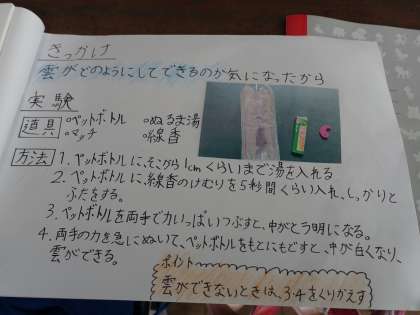 きっかけ
雲がどのようにしてできるのか気になったから
実験
道具 ◦ペットボトル ◦ぬるま湯
◦マッチ ◦線香
方法 1. ペットボトルに、そこから1cmくらいまで湯を入れる
2. ペットボトルに、線香のけむりを5秒間くらい入れ、しっかりと
ふたをする。
3. ペットボトルを両手で力いっぱいつぶすと、中がとう明になる。
4. 両手の力を急にぬいて、ペットボトルをもとにもどすと、中が白くなり、
雲ができる。
ポイント
雲ができないときは、3・4をくりかえす